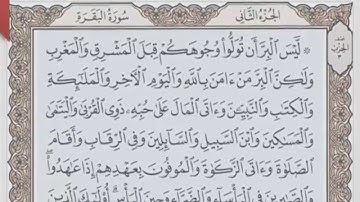 الجزء الثاني
سورة البقرة
۞ لَّيْسَ الْبِرَّ أَن تُوَلُّوا۟ وُجُوهَكُمْ قِبَلَ الْمَشْرِقِ وَالْمَغْرِبِ
وَلَٰكِنَّ الْبِرَّ مَنْ ءَامَنَ بِاللَّهِ وَالْيَوْمِ الْءَاخِرِ وَالْمَلَٰٓئِكَةِ
وَالْكِتَٰبِ وَالنَّبِيِّۦنَ وَءَاتَى الْمَالَ عَلَىٰ حُبِّهِۦ ذَوِى الْقُرْبَىٰ وَالْيَتَٰمَىٰ
وَالْمَسَٰكِينَ وَابْنَ السَّبِيلِ وَالسَّآئِلِينَ وَفِى الرِّقَابِ وَأَقَامَ
الصَّلَوٰةَ وَءَاتَى الزَّكَوٰةَ وَالْمُوفُونَ بِعَهْدِهِمْ إِذَا عَٰهَدُوا۟ ۖ
وَالصَّٰبِرِينَ فِى الْبَأْسَآءِ وَالضَّرَّآءِ وَحِينَ الْبَأْسِ ۗ أُو۟لَٰٓئِكَ الَّذِينَ